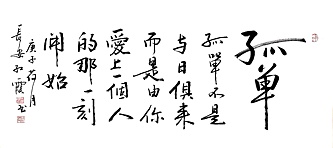 孤單
孤單不是
与日俱来
而是由你
愛上一個人
的那一刻
開始
庚子荷月
長安和霞书